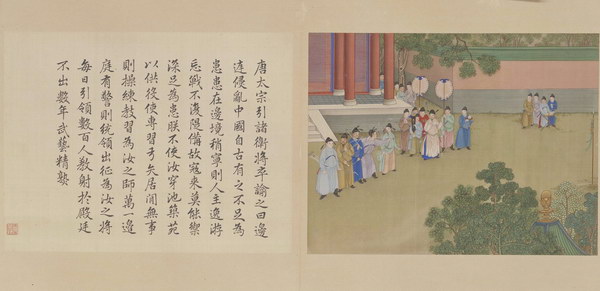 唐太宗引諸衛將卒諭之曰邊
侵亂中國自古有之不足為
患患在邊境稍寧則人主逸遊
忘戰不復隄備故寇來莫能禦
深足為患朕不使汝穿池築苑
以供役使專習弓矢居閒無事
則操練教習為汝之師萬一邊
庭有警則統領出征為汝之將
每日引領數百人教射於殿廷
不出數年武藝精熟